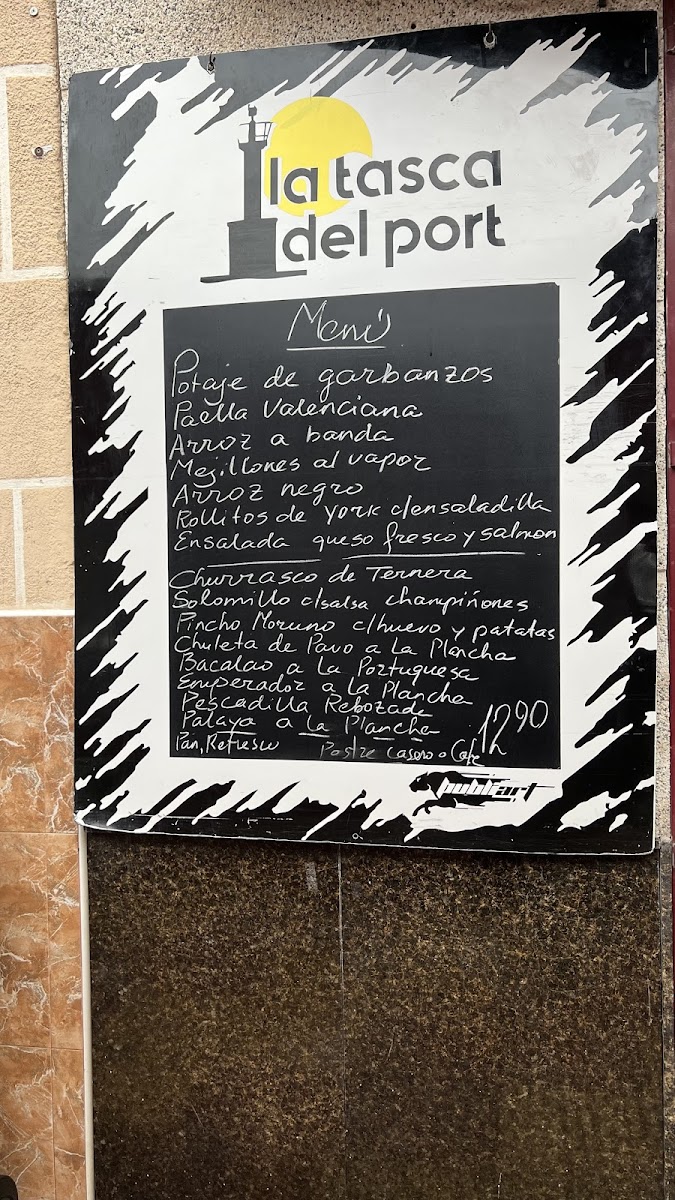 la tasca
del port
Menú
Potaje de garbanzos
Paella Valenciana
Arroz a banda
Mejillones al vapor
Arroz negro
Rollitos de york c/ensaladilla
Ensalada queso fresco y salmon
Churrasco de Ternera
Solomillo c/salsa champiñones
Pincho Moruno c/huevo y patatas
Chuleta de Pavo a la Plancha
Bacalao a la Portuguesa
Emperador a la Plancha
Pescadilla Rebozada
Palaya a la Plancha
12,90
Pan, Refresco Postre casero o Cafe
publiart